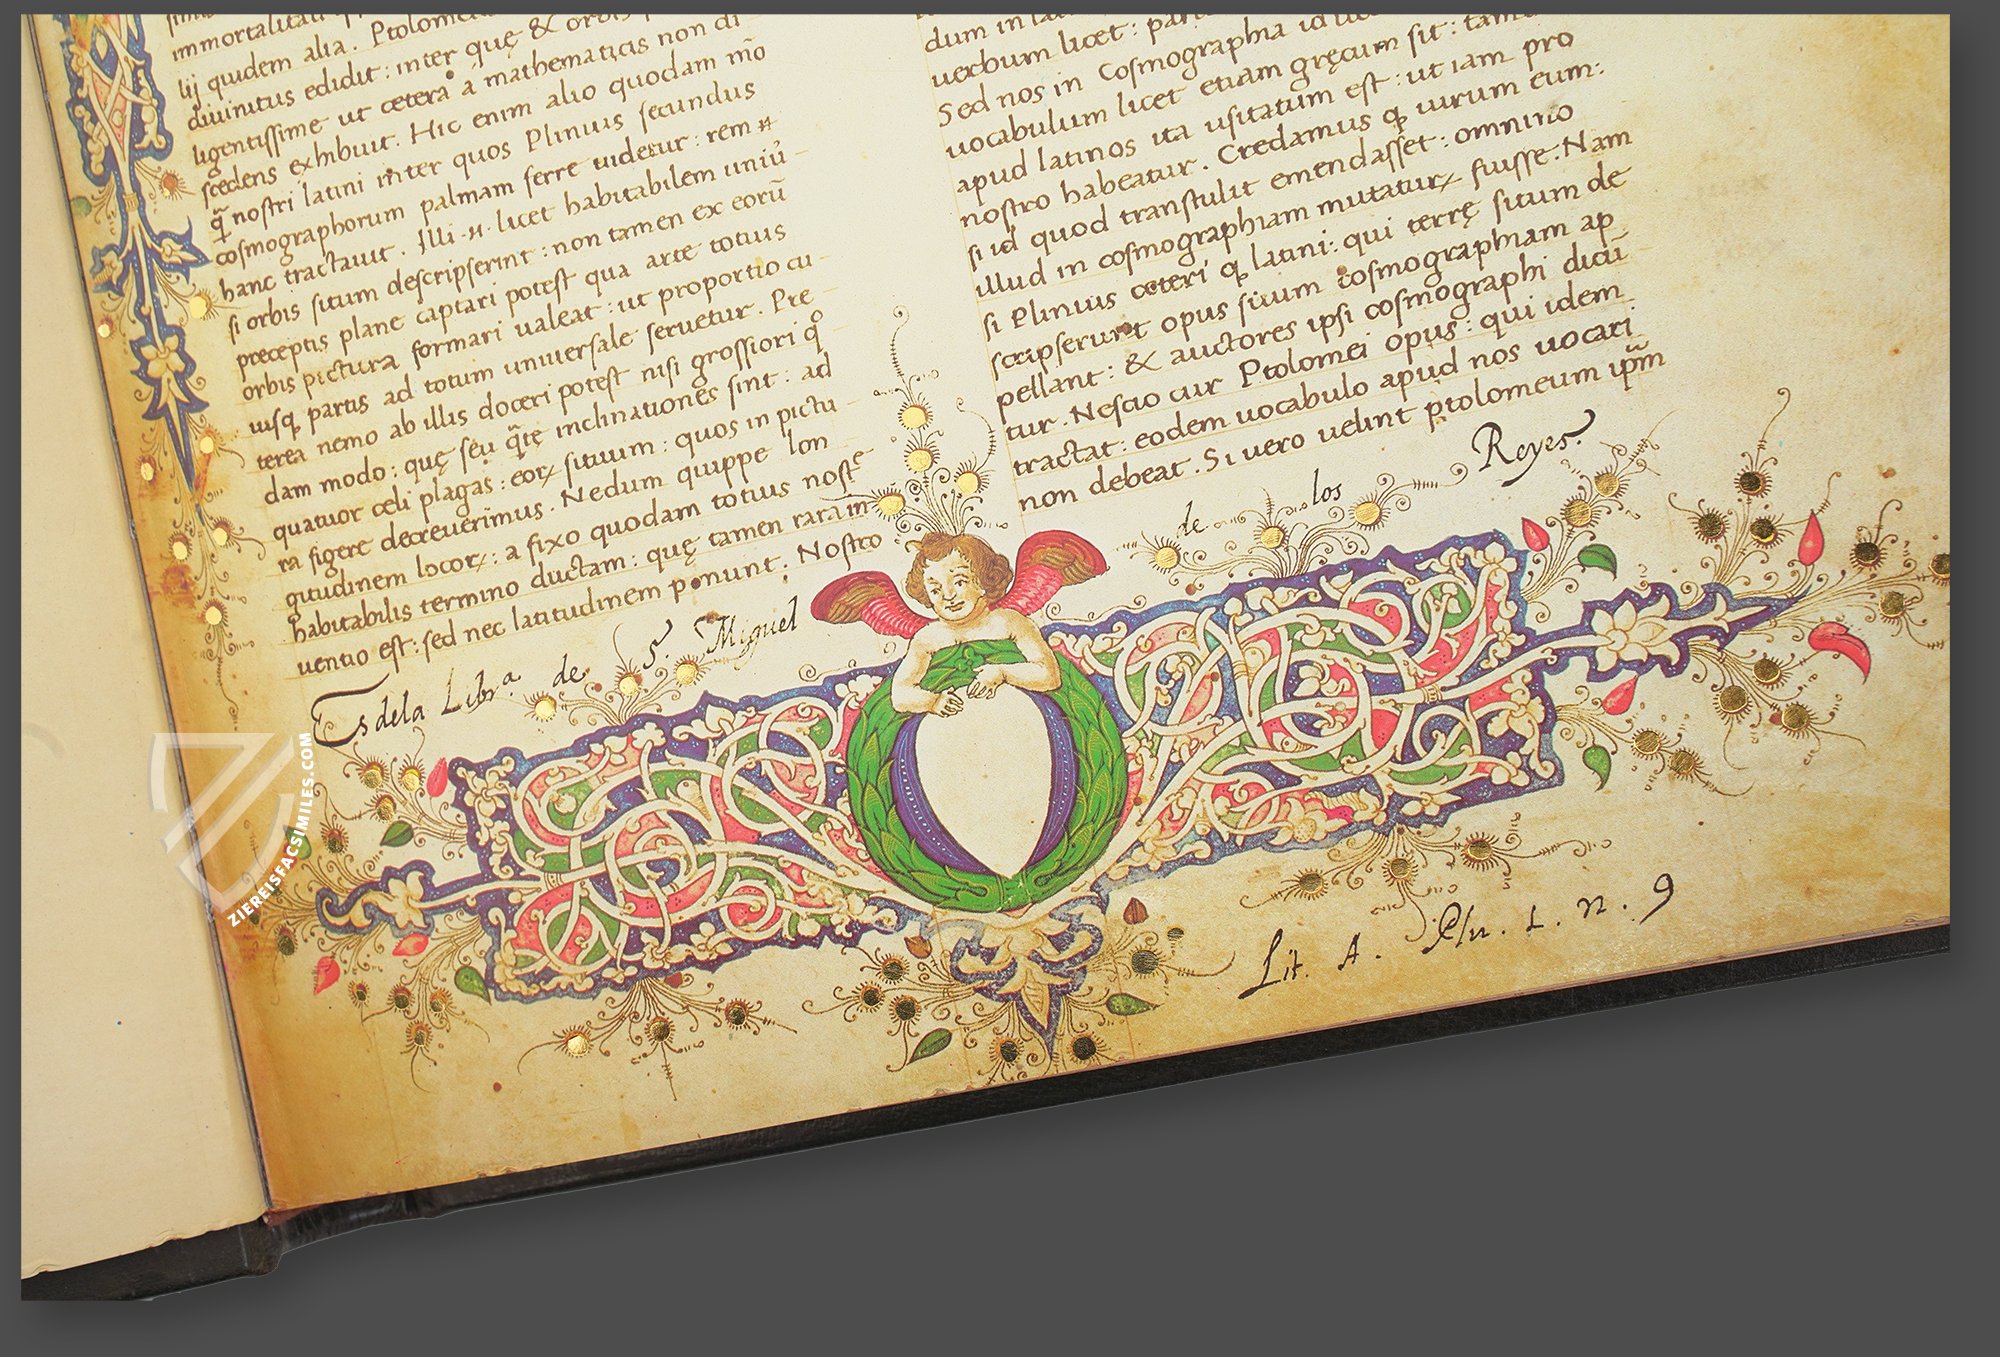 immortalitati
lij quidem alia. Ptolomeus
diuinitus edidit: inter quę & orbis
ligentissime ut cetera a mathematicis non di
scedens exhibuit. Hic enim alio quodam mō
q̃ nostri latini inter quos Plinius secundus
cosmographorum palmam ferre uidetur: rem
hanc tractauit. Illi .n. licet habitabilem uniũ
si orbis situm descripserint: non tamen ex eorũ
preceptis plane captari potest qua arte totius
orbis pictura formari ualeat: ut proportio cu
iusq partis ad totum uniuersale seruetur. Pre
terea nemo ab illis doceri potest nisi grossiori q°
dam modo: quę seu q̃tę inclinationes sint: ad
quatuor celi plagas: eoꝝ situum: quos in pictu
ra figere decreuerimus. Nedum quippe lon
gitudinem locoꝝ: a fixo quodam totius nostᵉ
habitabilis termino ductam: quę tamen rara in
uentio est: sed nec latitudinem ponunt. Nostro
dum in
uerbum licet:
Sed nos in Cosmographia id
uocabulum licet etiam gręcum sit:
apud latinos ita usitatum est: ut iam pro
nostro habeatur. Credamus ꝙ uirum eum:
si id quod transtulit emendasset: omnino
illud in cosmographiam mutaturꝝ fuisse. Nam
si Plinius ceteri ꝙ latini: qui terrę situm de
scripserunt opus suum cosmographiam ap
pellant: & auctores ipsi cosmographi dicũ
tur. Nescio cur Ptolomei opus: qui idem
tractat: eodem uocabulo apud nos uocari
non debeat. Si uero uelint ptolomeum ipm̃
Es dela Libr.ª de S. Miguel de los Reyes.
Lit. A. Plu. 1. n. 9
ZIEREISFACSIMILES.COM